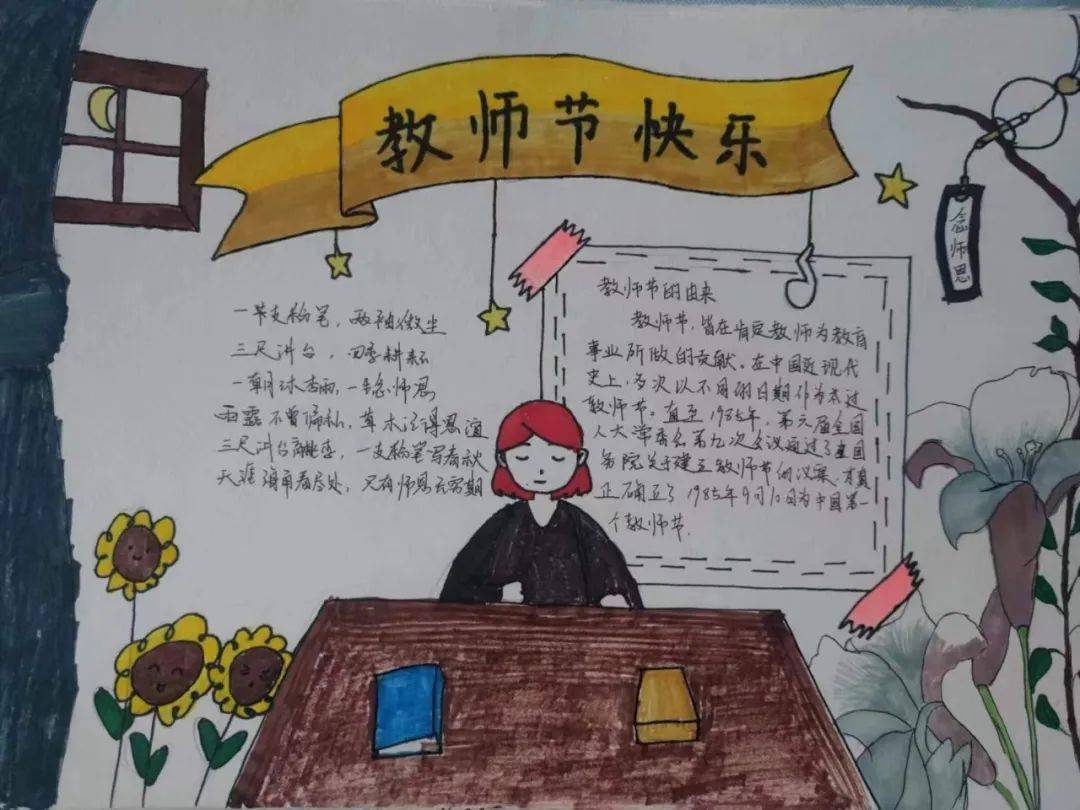 教师节快乐
念师思
一节支粉笔，两袖微尘
三尺讲台，四季耕耘
一朝沐杏雨，一生念师恩
雨露不曾偏私，草木泛得恩谊
三尺讲台商桃李，一支粉笔写春秋
天涯海角有尽处，只有师恩无穷期
教师节的由来
教师节，旨在肯定教师为教育
事业所做的贡献。在中国近现代
史上，多次以不同的日期作为过
教师节。直至1985年，第六届全国
人大常委会第九次会议通过了国
务院关于建立教师节的议案，才真
正确立了1985年9月10日为中国第一
个教师节.